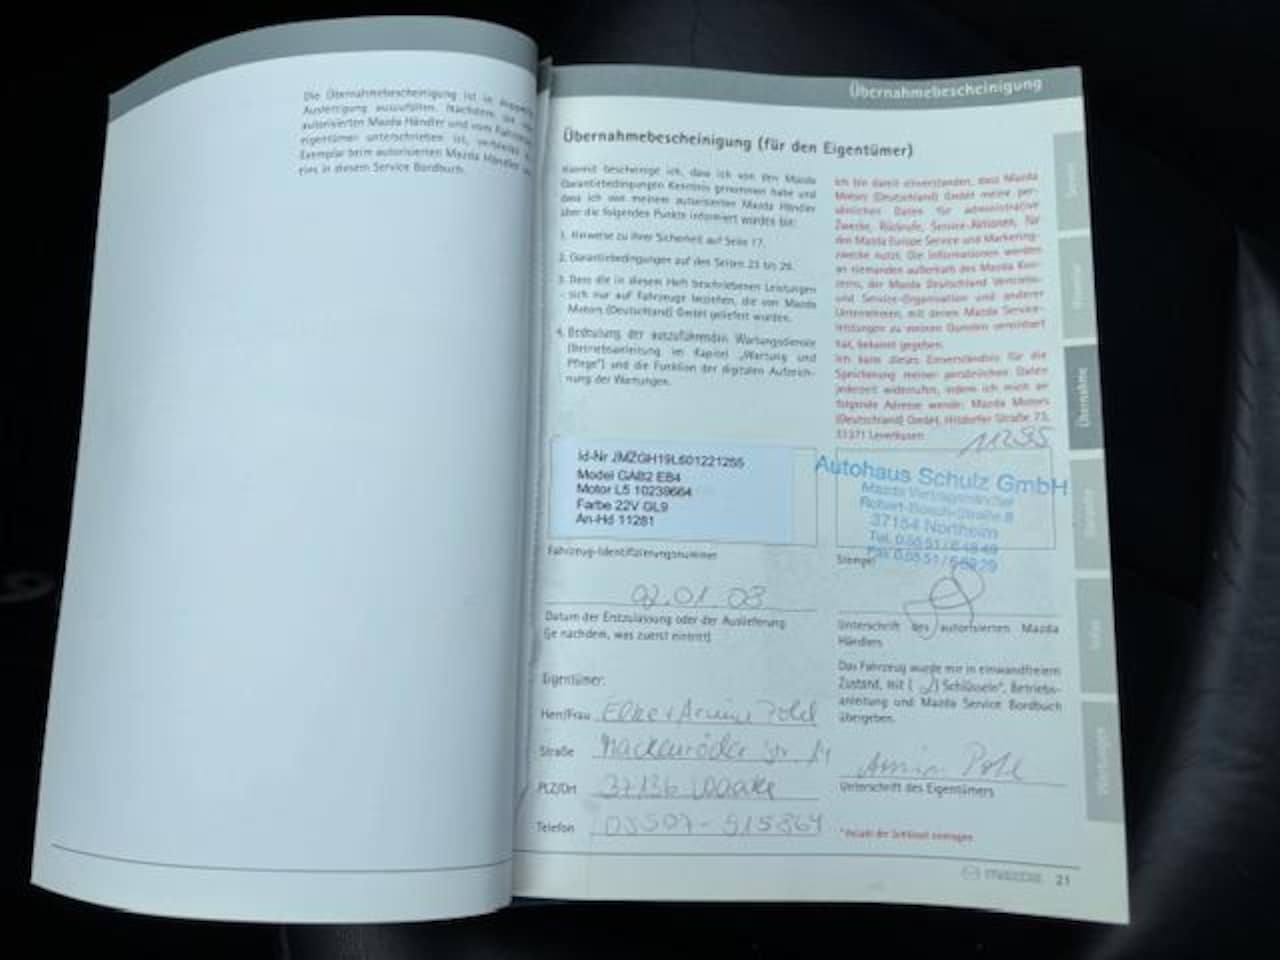 Die Übernahmebescheinigung ist in doppelter
Ausfertigung auszufüllen. Nachdem sie vom
autorisierten Mazda Händler und vom Fahrzeug-
eigentümer unterschrieben ist, verbleibt
Exemplar beim autorisierten Mazda Händler
eins in diesem Service Bordbuch.
Übernahmebescheinigung
Übernahmebescheinigung (für den Eigentümer)
Hiermit bescheinige ich, dass ich von den Mazda
Garantiebedingungen Kenntnis genommen habe und
dass ich von meinem autorisierten Mazda Händler
über die folgenden Punkte informiert worden bin:
1. Hinweise zu Ihrer Sicherheit auf Seite 17.
2. Garantiebedingungen auf den Seiten 23 bis 29.
3. Dass die in diesem Heft beschriebenen Leistungen
sich nur auf Fahrzeuge beziehen, die von Mazda
Motors (Deutschland) GmbH geliefert wurden.
4. Bedeutung der auszuführenden Wartungsdienste
(Betriebsanleitung im Kapitel „Wartung und
Pflege") und die Funktion der digitalen Aufzeich-
nung der Wartungen.
Id-Nr JMZGH19L601221255
Model GAB2 EB4
Motor L5 10239664
Farbe 22V GL9
An-Hd 11281
Fahrzeug-Identifizierungsnummer
02.01.08
Datum der Erstzulassung oder der Auslieferung
(je nachdem, was zuerst eintritt)
Eigentümer:
Herr/Frau
Straße
PLZ/Ort 37136 Waake
Telefon 05507-915864
Ich bin damit einverstanden, dass Mazda
Motors (Deutschland) GmbH meine per-
sönlichen Daten für administrative
Zwecke, Rückrufe, Service-Aktionen, für
den Mazda Europe Service und Marketing-
zwecke nutzt. Die Informationen werden
an niemanden außerhalb des Mazda Kon-
zerns, der Mazda Deutschland Vertriebs-
und Service-Organisation und anderer
Unternehmen, mit denen Mazda Service-
leistungen zu meinen Gunsten vereinbart
hat, bekannt gegeben.
Ich kann dieses Einverständnis für die
Speicherung meiner persönlichen Daten
jederzeit widerrufen, indem ich mich an
folgende Adresse wende: Mazda Motors
(Deutschland) GmbH, Hitdorfer Straße 73,
51371 Leverkusen
Autohaus Schulz GmbH
Mazda Vertragshändler
Robert-Bosch-Straße 8
37154 Northeim
Stempel
Unterschrift des autorisierten Mazda
Händlers
Das Fahrzeug wurde mir in einwandfreiem
Zustand, mit ( 2 ) Schlüsseln*, Betriebs-
anleitung und Mazda Service Bordbuch
übergeben.
Armin Pohl
Unterschrift des Eigentümers
* Anzahl der Schlüssel eintragen
mazda 21
Übernahme
Wartungen